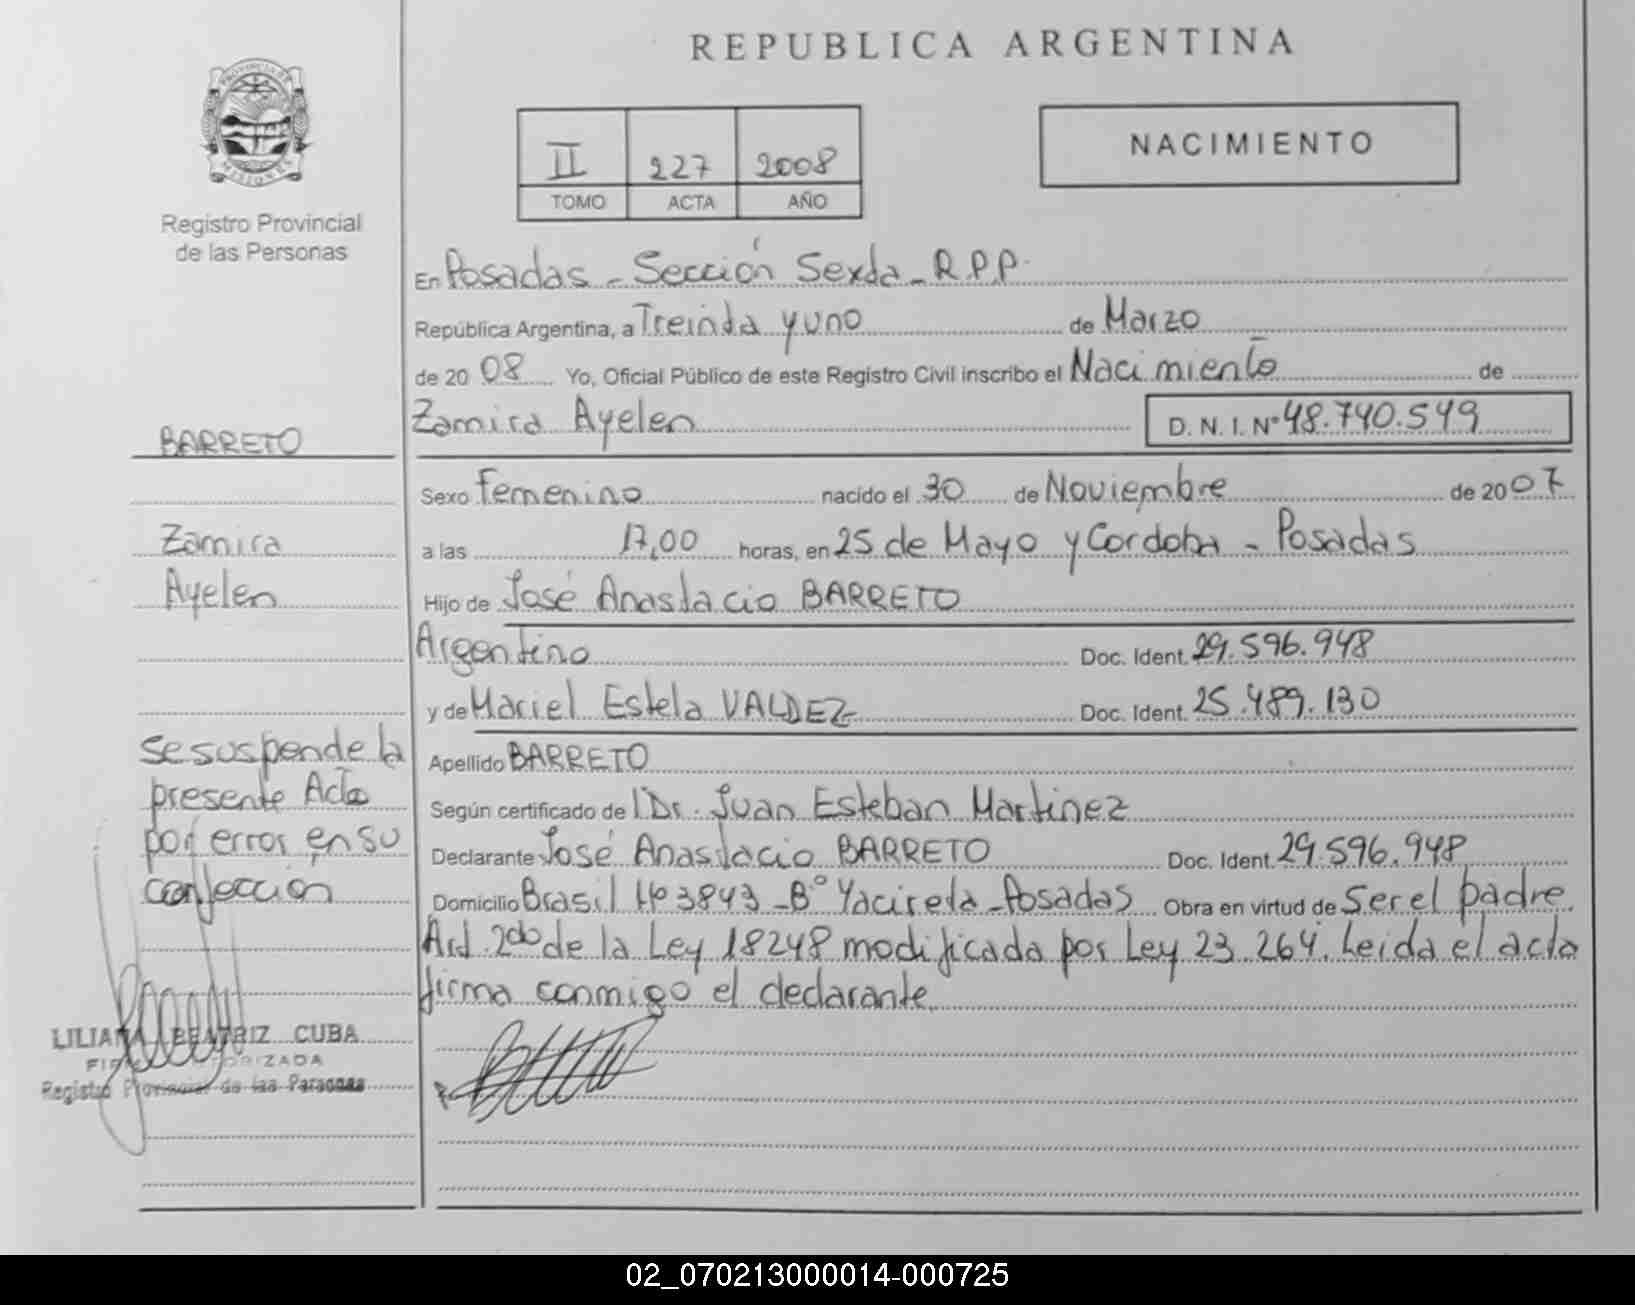 REPUBLICA ARGENTINA
PROVINCIA DE
MISIONES
Registro Provincial
de las Personas
II 227 2008
TOMO ACTA AÑO
NACIMIENTO
En Posadas - Sección Sexta - R.P.P.
República Argentina, a Treinta y uno de Marzo
de 20 08 Yo, Oficial Público de este Registro Civil inscribo el Nacimiento de
Zamira Ayelen D. N. I. Nº 48.740.549
BARRETO
Sexo Femenino nacido el 30 de Noviembre de 2007
Zamira
a las 17,00 horas, en 25 de Mayo y Cordoba - Posadas
Ayelen
Hijo de José Anastacio BARRETO
Argentino Doc. Ident. 29.596.948
y de Mariel Estela VALDEZ Doc. Ident. 25.489.130
Se suspende la
presente Acta
por error en su
confección
Apellido BARRETO
Según certificado de Dr. Juan Esteban Martinez
Declarante José Anastacio BARRETO Doc. Ident. 29.596.948
Domicilio Brasil Nº 3843 - Bº Yacireta - Posadas Obra en virtud de Ser el padre.
Art. 2do de la Ley 18248 modificada por Ley 23.264. Leida el acta
firma conmigo el declarante.
LILIANA BEATRIZ CUBA
Registro Provincial de las Personas
02_070213000014-000725